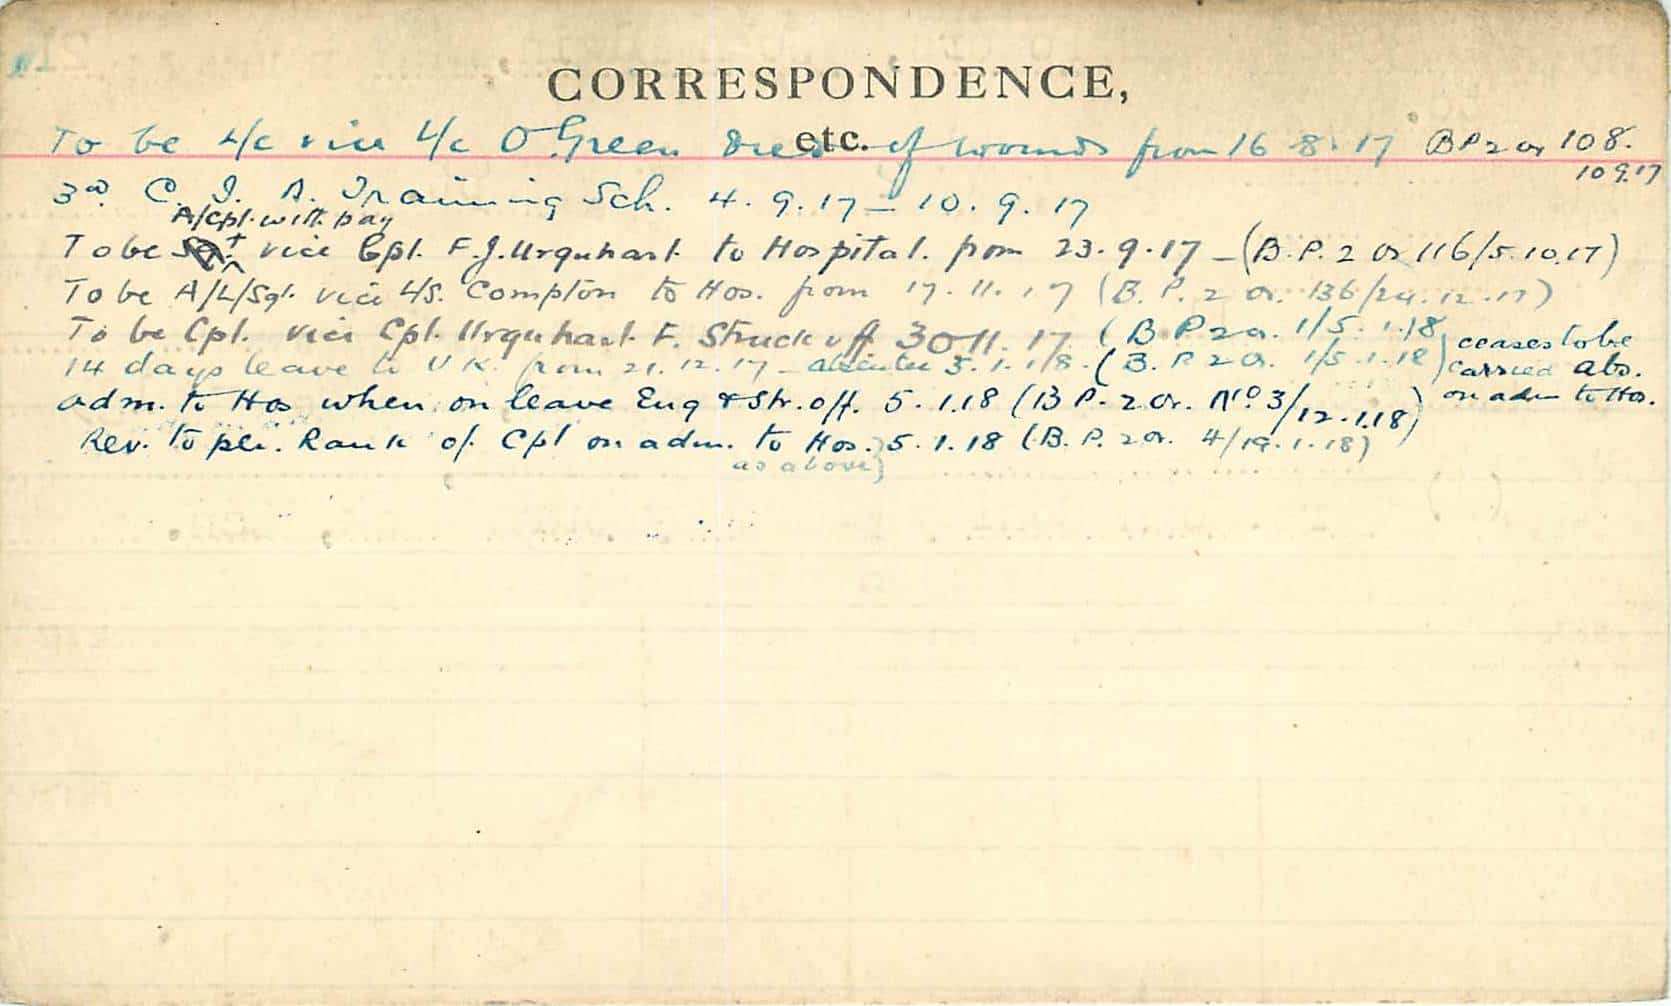 CORRESPONDENCE,
etc.
To be L/c vice L/c O Green Died of wounds from 16-8-17 B P 2 or 108.
10 9.17
3rd C. I. A. Training Sch. 4.9.17 – 10.9.17
A/Cpl. with pay
To be vice Cpl. F.J. Urquhart to Hospital. from 23.9.17 – (B.P. 2 or 116/5.10.17)
To be A/L/Sgt. vice L/S. Compton to Hos. from 17.11.17 (B.P. 2 or. 136/24.12.17)
To be Cpl. vice Cpl. Urquhart F. Struck off 30 11.17. (B P 2 or. 1/5.1.18
14 days leave to U K. from 21.12.17 – absentee 5.1.18. (B.P. 2 or. 1/5.1.18)
ceases to be
carried abs.
on adm to Hos.
adm. to Hos when on leave Eng & Str. off. 5.1.18 (B P. 2 or. No 3/12.1.18)
Rev. to per. Rank of Cpl on adm. to Hos. 5.1.18 (B.P. 2 or. 4/19.1.18)
as above)